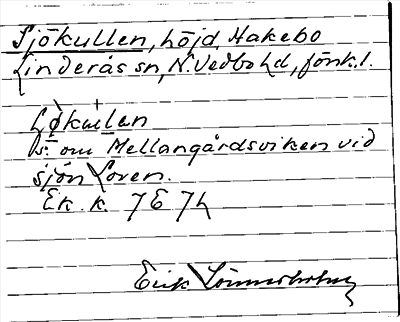 Sjökullen, höjd, Hakebo
Linderås sn, N. Vedbo hd, Jönk. l.
Lø̀kullen
S: om Mellangårdsviken vid
sjön Loren.
Ek. k. 7E 7h
Erik Lönnerholm